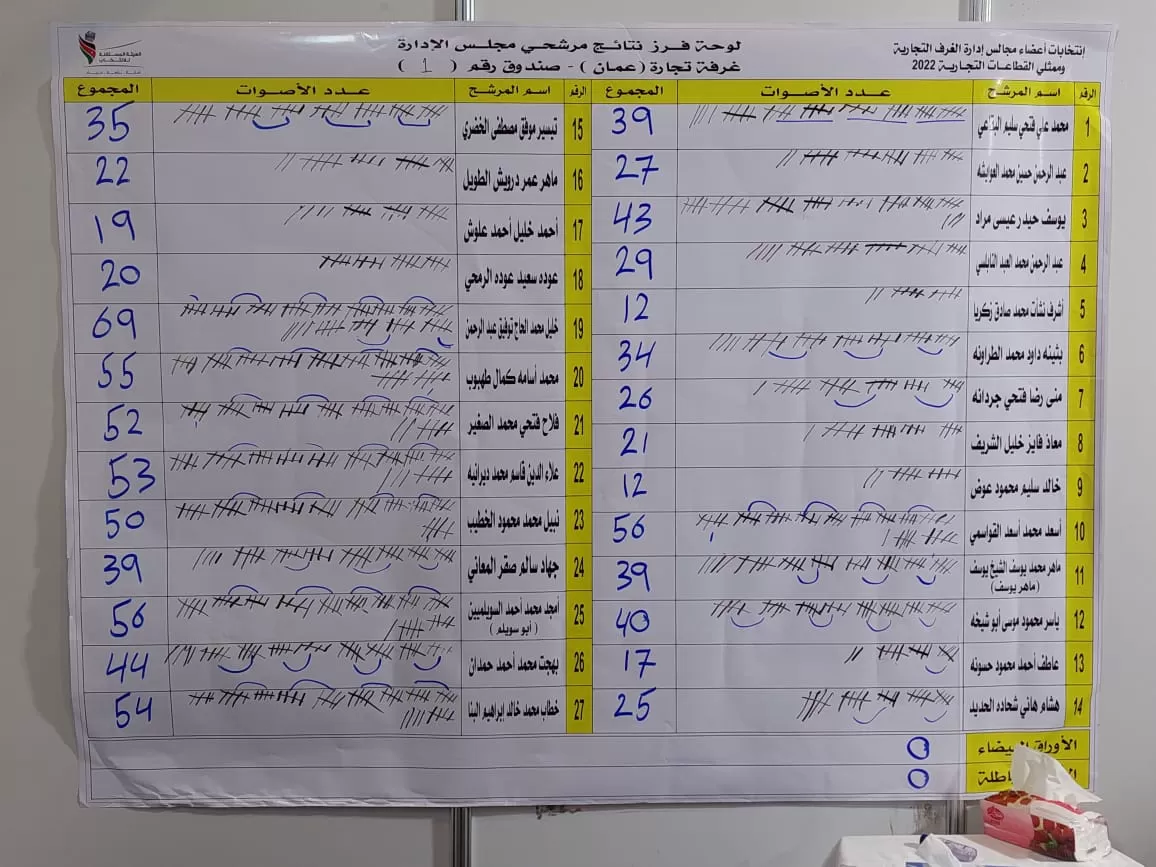 إنتخابات أعضاء مجالس إدارة الغرف التجارية
وممثلي القطاعات التجارية 2022
لوحة فرز نتائج مرشحي مجلس الإدارة
غرفة تجارة (عمان) - صندوق رقم (1)
الهيئة المستقلة للانتخاب
الرقم اسم المرشح عدد الأصوات المجموع
1 محمد علي فتحي سليم البقاعي 39
2 عبد الرحمن حسين محمد العوايشه 27
3 يوسف حيدر عيسى مراد 43
4 عبد الرحمن محمد العبد النابلسي 29
5 أشرف نشأت محمد صادق زكريا 12
6 بثينه داود محمد الطراونه 34
7 منى رضا فتحي جردانه 26
8 معاذ فايز خليل الشريف 21
9 خالد سليم محمود عوض 12
10 أسعد محمد أسعد القواسمي 56
11 ماهر محمد يوسف الشيخ يوسف 39
(ماهر يوسف)
12 ياسر محمود موسى أبو شيخه 40
13 عاطف أحمد محمود حسونه 17
14 هشام هاني شحاده الحديد 25
الأوراق البيضاء 0
0
الرقم اسم المرشح عدد الأصوات المجموع
15 تيسير موفق مصطفى الخضري 35
16 ماهر عمر درويش الطويل 22
17 أحمد خليل أحمد علوش 19
18 عوده سعيد عوده الرمحي 20
19 خليل محمد الحاج توفيق عبد الرحمن 69
20 محمد أسامه كمال طهبوب 55
21 فلاح فتحي محمد الصغير 52
22 علاء الدين قاسم محمد ديرانيه 53
23 نبيل محمد محمود الخطيب 50
24 جهاد سالم صقر المعاني 39
25 أمجد محمد أحمد السويلميين 56
(أبو سويلم)
26 بهجت محمد أحمد حمدان 44
27 خطاب محمد خالد إبراهيم البنا 54